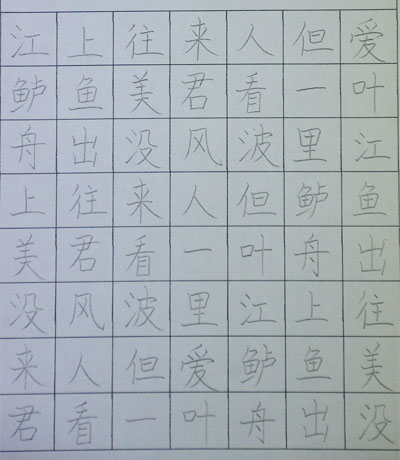 江上往来人但爱
鲈鱼美君看一叶
舟出没风波里江
上往来人但鲈鱼
美君看一叶舟出
没风波里江上往
来人但爱鲈鱼美
君看一叶舟出没